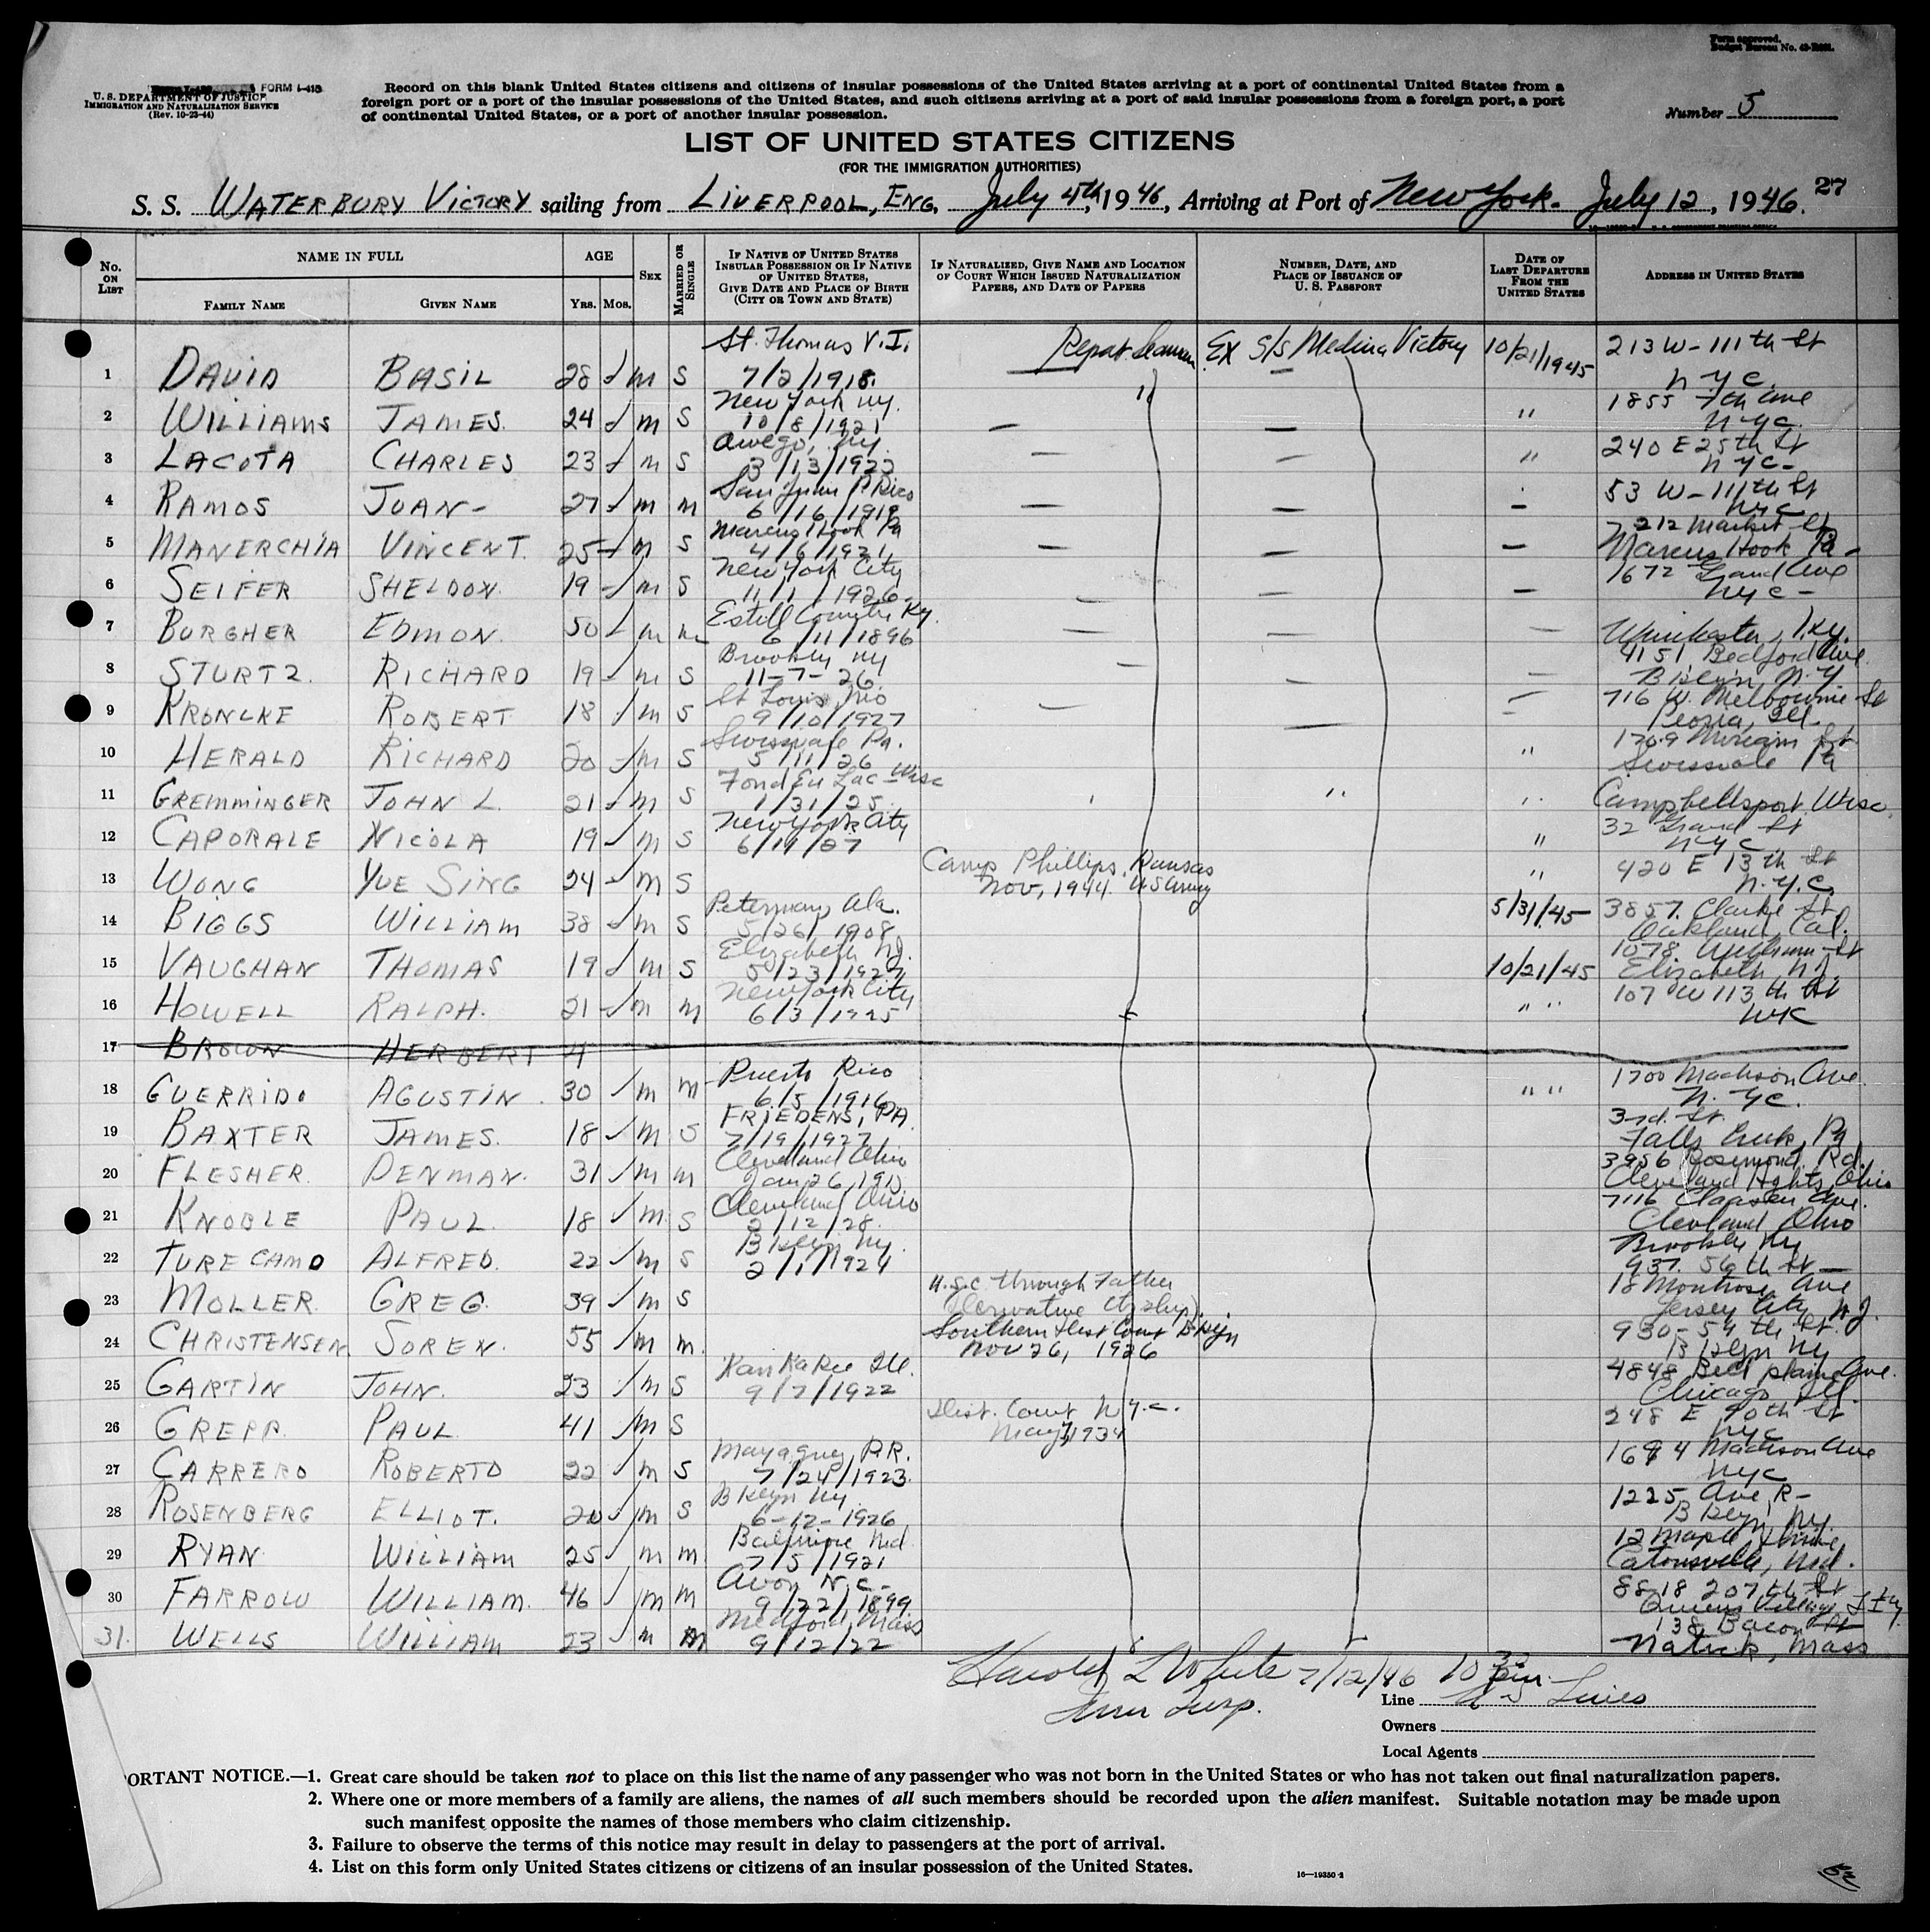 Form approved.
Budget Bureau No. 43-R061.
FORM I-415
U. S. DEPARTMENT OF JUSTICE
IMMIGRATION AND NATURALIZATION SERVICE
(Rev. 10-23-44)
Record on this blank United States citizens and citizens of insular possessions of the United States arriving at a port of continental United States from a
foreign port or a port of the insular possessions of the United States, and such citizens arriving at a port of said insular possessions from a foreign port, a port
of continental United States, or a port of another insular possession.
Number 5
LIST OF UNITED STATES CITIZENS
(FOR THE IMMIGRATION AUTHORITIES)
S. S. WATERBURY VICTORY sailing from LIVERPOOL, ENG, July 4th, 1946, Arriving at Port of New York. July 12, 1946. 27
No. ON LIST
NAME IN FULL
FAMILY NAME GIVEN NAME
AGE
YRS. MOS.
SEX
MARRIED OR SINGLE
IF NATIVE OF UNITED STATES INSULAR POSSESSION OR IF NATIVE OF UNITED STATES, GIVE DATE AND PLACE OF BIRTH (CITY OR TOWN AND STATE)
IF NATURALIZED, GIVE NAME AND LOCATION OF COURT WHICH ISSUED NATURALIZATION PAPERS, AND DATE OF PAPERS
NUMBER, DATE, AND PLACE OF ISSUANCE OF U. S. PASSPORT
DATE OF LAST DEPARTURE FROM THE UNITED STATES
ADDRESS IN UNITED STATES
St. Thomas V.I. Repat. Seaman Ex S/S Medina Victory 10/21/1945 213 W-111th St
1 DAVID BASIL 28 m S 7/2/1918. — N.Y.C.
New York NY. " 1855 7th Ave
2 WILLIAMS JAMES. 24 m S 10/8/1921 — — " N.Y.C.
Owego, NY. 240 E 25th St
3 LACOTA CHARLES 23 m S 3/13/1923 — — " NYC-
San Juan P. Rico 53 W-111th St
4 RAMOS JUAN- 27 m m 6/16/1919 — — — NYC
Marcus Hook Pa 212 Market St
5 MANERCHIA VINCENT. 25 m S 4/6/1921 — — — Marcus Hook Pa-
New York City 1672 Grand Ave
6 SEIFER SHELDON. 19 m S 11/1/1926 — — — NYC-
Estill County Ky.
7 BURGHER EDMON. 50 m m 6/11/1896 — — — Winchester, Ky.
Brooklyn NY 4151 Bedford Ave
8 STURTZ. RICHARD 19 m S 11-7-26 — — — Bklyn N.Y
St Louis Mo 716 W. Melbourne St
9 KRONCKE ROBERT 18 m S 9/10/1927 — — — Peoria, Ill.
Swissvale Pa. 1709 Miriam St
10 HERALD RICHARD 20 m S 5/11/26 " Swissvale Pa
Fond du Lac-Wisc
11 GREMMINGER JOHN L. 21 m S 1/31/25 " " Campbellsport Wisc.
New York City 32 Grand St
12 CAPORALE NICOLA 19 m S " NYC
Camp Phillips, Kansas 420 E 13th St
13 WONG YUE SING 24 m S Nov, 1944 US Army " N.Y.C.
Peterman, Ala. 3857 Clarke St
14 BIGGS WILLIAM 38 m S 5/26/1908 5/31/45 Oakland, Cal.
Elizabeth NJ. 1078 William St
15 VAUGHAN THOMAS 19 m S 5/23/1927 10/21/45 Elizabeth NJ
New York City 107 W 113th St
16 HOWELL RALPH. 21 m m 6/3/1925 " " NYC
17 BROWN HERBERT 4
Puerto Rico 1700 Madison Ave
18 GUERRIDO AGUSTIN 30 m m 6/5/1916 " " N.YC.
FRIEDENS, PA. 3rd. St
19 BAXTER JAMES. 18 m S 7/19/1927 Falls Creek, Pa
Cleveland Ohio 3956 Rosemond Rd.
20 FLESHER DENMAN. 31 m m Jan 26, Cleveland Hghts, Ohio
Cleveland Ohio 7116 Claasen Ave.
21 KNOBLE PAUL. 18 m S 2/12/28. Cleveland, Ohio
Bklyn NY. Brooklyn NY
22 TURECAMO ALFRED. 22 m S 2/1/1924 937. 56th St-
U.S.C through Father 18 Montrose Ave
23 MOLLER. GREG. 39 m S (Derivative Ctzship). Jersey City N.J.
Southern Dist Court Bklyn 930-54th St.
24 CHRISTENSEN SOREN. 55 m m. Nov 26, 1926 Bklyn NY
Kankakee Ill. 4848 Bell plaine Ave.
25 GARTIN JOHN. 23 m S 9/7/1922 Chicago Ill.
Dist. Court N.Y.C. 248 E 90th St
26 GREPP. PAUL 41 m S May 7, 1934 NYC
Mayaguez, P.R. 1694 Madison Ave
27 CARRERO ROBERTO 22 m S 7/24/1923. NYC
Bklyn NY. 1225 Ave R-
28 ROSENBERG ELLIOT. 20 m S 6-12-1926 Bklyn, NY
Baltimore Md. 12 Maple Drive
29 RYAN WILLIAM 25 m m 7/5/1921 Catonsville, Md.
Avon N.C- 8818 207th St
30 FARROW WILLIAM. 46 m m 9/22/1899 Queens Village
Medford, Mass 138 Bacon St
31. WELLS WILLIAM 23 m m 9/12/22 Natick, Mass
Harold L White 7/12/46 10 30 pm
Imm Insp.
Line US Lines
Owners
Local Agents
ORTANT NOTICE.—1. Great care should be taken not to place on this list the name of any passenger who was not born in the United States or who has not taken out final naturalization papers.
2. Where one or more members of a family are aliens, the names of all such members should be recorded upon the alien manifest. Suitable notation may be made upon
such manifest opposite the names of those members who claim citizenship.
3. Failure to observe the terms of this notice may result in delay to passengers at the port of arrival.
4. List on this form only United States citizens or citizens of an insular possession of the United States.
16—19350-2